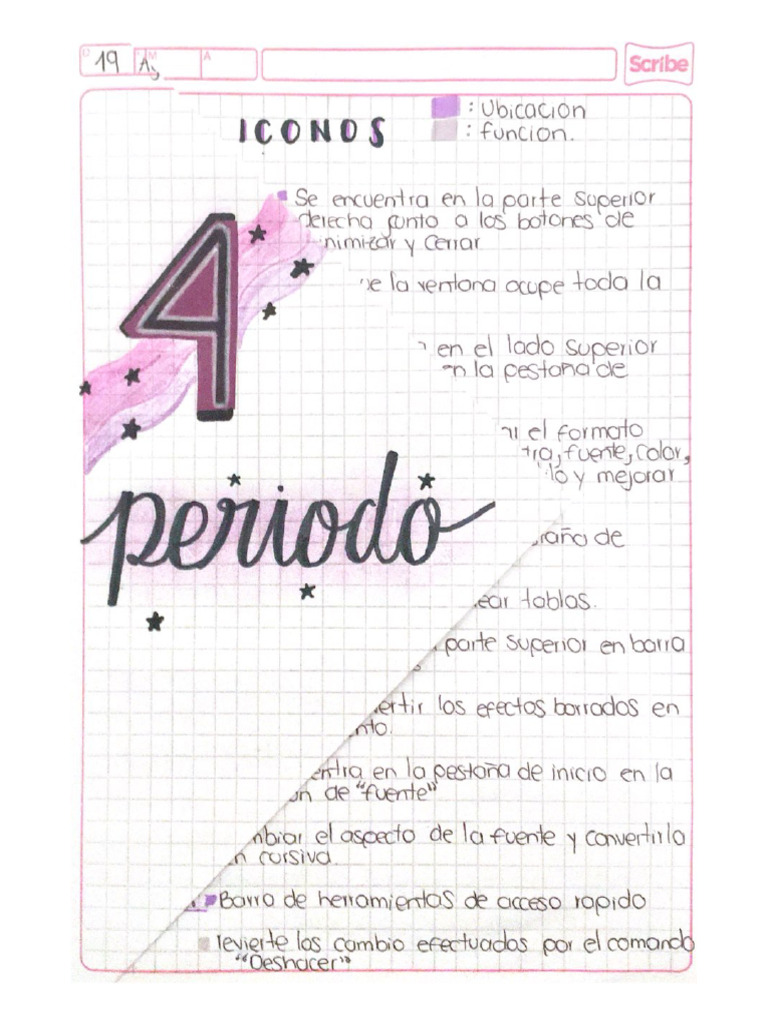 19
A
Scribe
: Ubicacion
ICONOS
: funcion.
Se encuentra en la parte superior
derecha junto a los botones de
nimizar y cerrar
4
e la ventana ocupe toda la
en el lado superior
en la pestaña de
el formato
tra, fuente, color,
lo y mejorar
periodo
año de
ear tablas.
parte superior en barra
ertir los efectos borrados en
nto.
entra en la pestaña de inicio en la
ón de "fuente"
mbiar el aspecto de la fuente y convertirlo
n cursiva.
Barra de herramientas de acceso rapido
revierte los cambio efectuados por el comando
"Deshacer"